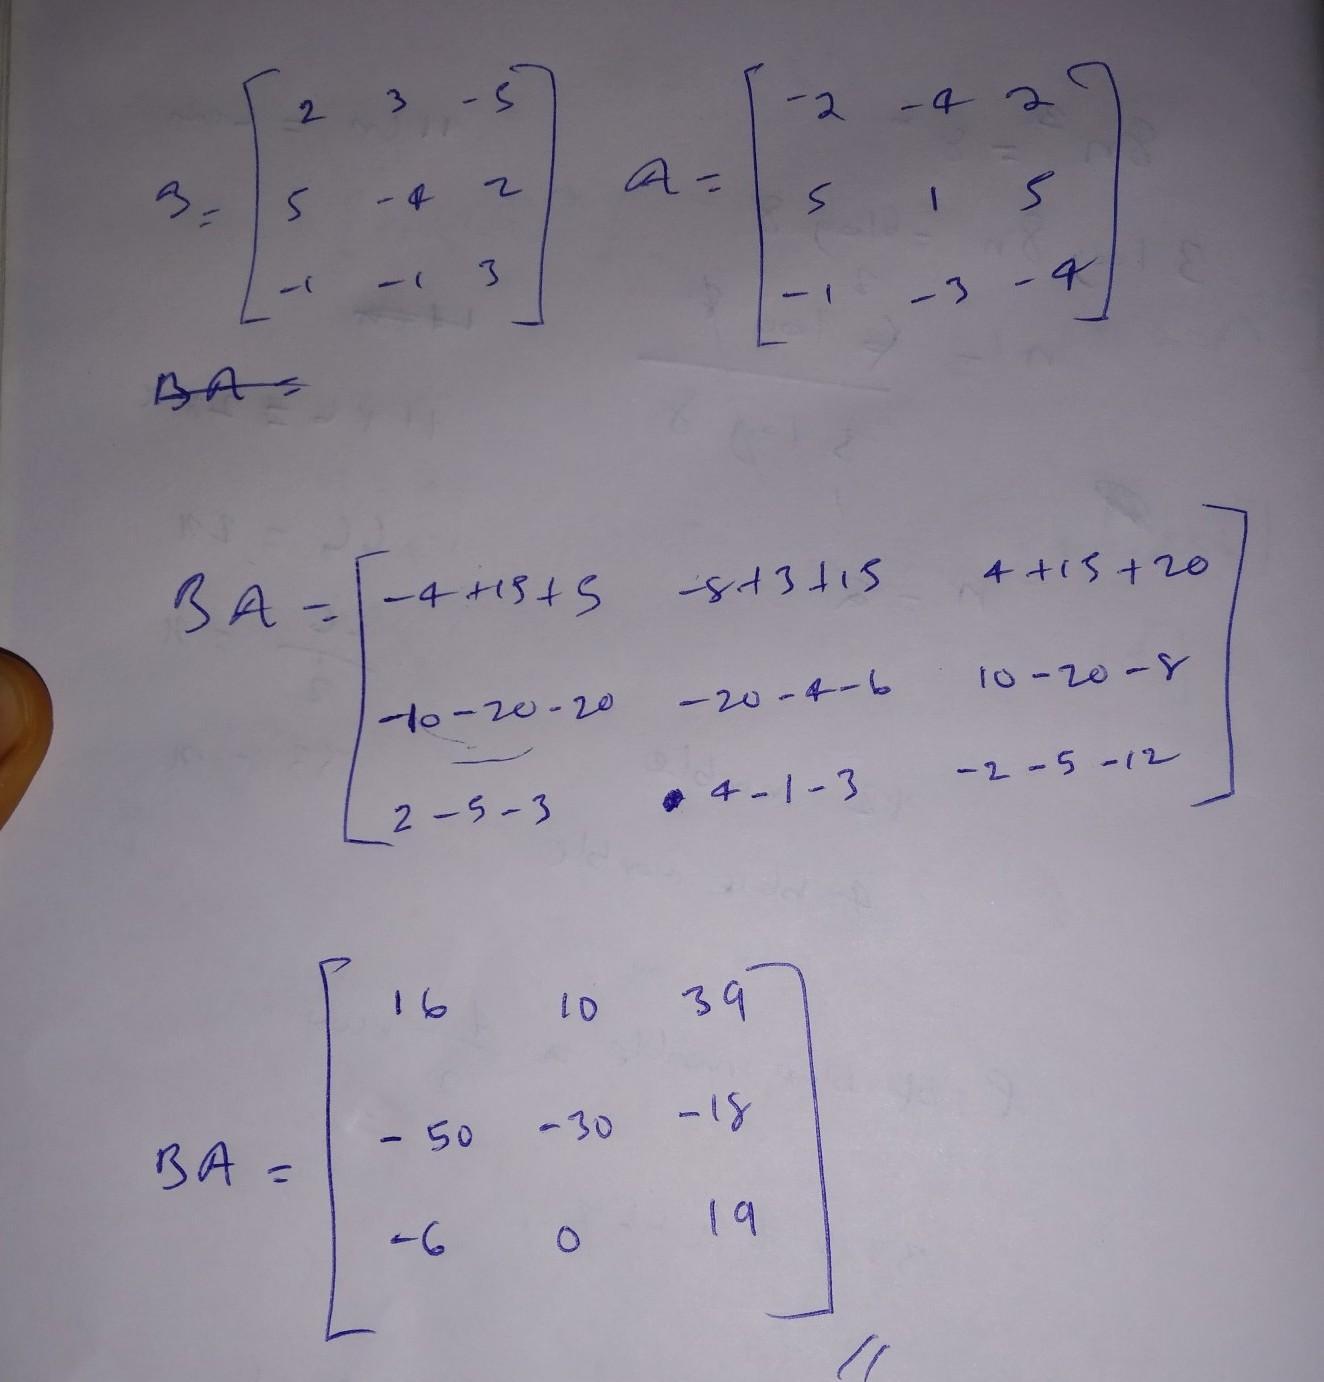 B = [ 2 3 -5 A = [ -2 -4 2
5 -4 2 5 1 5
-1 -1 3 ] -1 -3 -4 ]
BA =
BA = [ -4+15+5 -8+3+15 4+15+20
-10-20-20 -20-4-6 10-20-8
2-5-3 4-1-3 -2-5-12 ]
BA = [ 16 10 39
-50 -30 -18
-6 0 19 ]
//